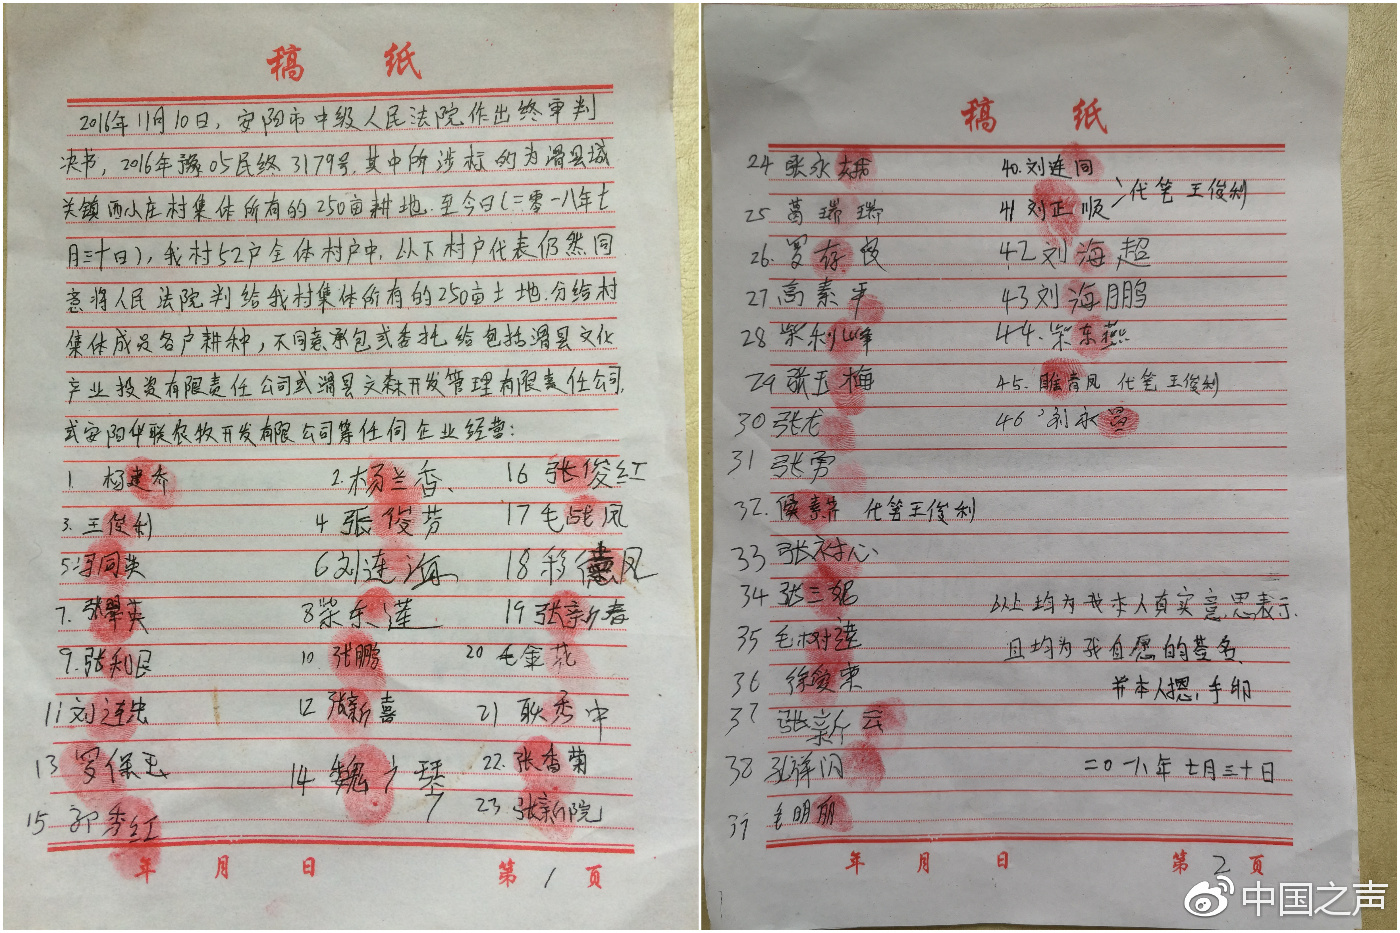 稿 纸
2016年11月10日，安阳市中级人民法院作出终审判
决书，2016年豫05民终3179号，其中所涉标的为滑县城
关镇西小庄村集体所有的250亩耕地．至今日（二零一八年七
月三十日），我村52户全体村户中，以下村户代表仍然同
意将人民法院判给我村集体所有的250亩土地．分给村
集体成员各户耕种，不同意承包或委托给包括滑县文化
产业投资有限责任公司或滑县文森开发管理有限责任公司．
或安阳华联农牧开发有限公司等任何企业经营：
1. 杨建乔 2. 杨兰香、 16 张俊红
3. 王俊利 4 张俊芳 17 毛战凤
5. 同英 6 刘连 18 德凤
7. 张翠英 8 柴东莲 19 张新春
9. 张知民 10. 张鹏 20 毛金花
11 刘连忠 12 张新喜 21 耿秀中
13 罗保玉 14 魏 琴 22. 张香菊
15 郭秀红 23 张新院
年 月 日 第 1 页
稿 纸
24 张永 40. 刘连同
25 葛瑞瑞 41 刘正顺 代笔 王俊利
26. 罗存良 42 刘海超
27 高素平 43 刘海鹏
28 柴利峰 44. 柴东燕
29 张玉梅 45. 凤 代笔 王俊利
30 张龙 46 刘永昌
31 张勇
32. 侯素 代笔王俊利
33 张
34 张三 以上均为我本人真实意思表示．
35 毛树 且均为我自愿的签名、
36 徐俊 并本人摁．手印
37 张新云
38 二〇一八年七月三十日
39 毛明朋
年 月 日 第 2 页
中国之声